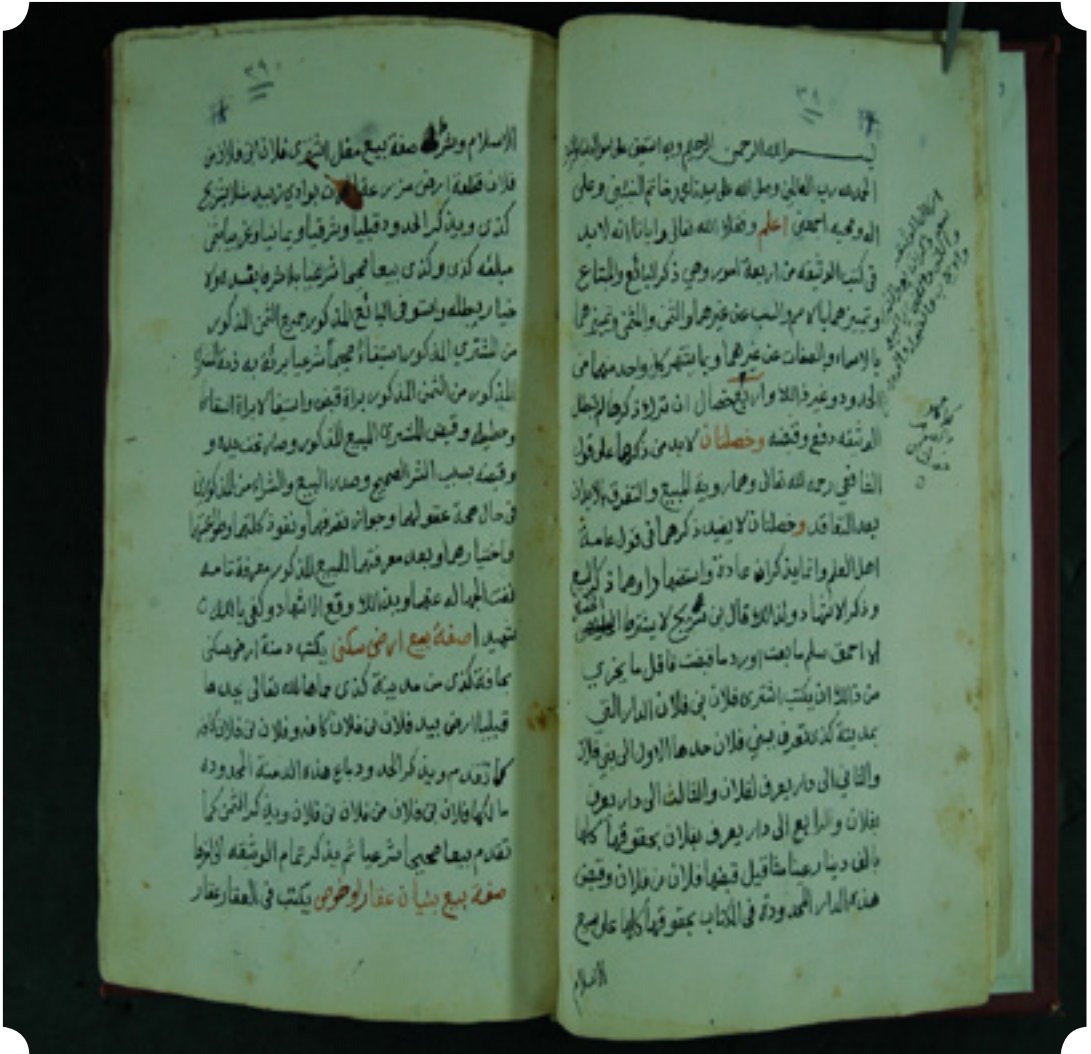 ٣٨
بسم الله الرحمن الرحيم وبه استعين على امور الدنيا والدين
الحمد لله رب العالمين وصلى الله على سيدنا محمد خاتم النبيين وعلى
اله وصحبه اجمعين اعلم وفقك الله تعالى وايانا انه لابد
في كتب الوثيقه من اربعة امور وهي ذكر البائع والمبتاع
وتميزهما بالاسم والنسب عن غيرهما والثمن والمثمن وتميزهما
بالاسماء والصفات عن غيرهما وبما يشتهر كل واحد منهما من
الحدود وغير ذالك واربع خصال ان ترك ذكرها لم تبطل
الوثيقه دفع وقبضه وخصلتان لابد من ذكرها على قول
الشافعي رحمه الله تعالى وهما روية المبيع والتفرق بالابدان
بعد التعاقد وخصلتان لا يفيد ذكرهما في قول عامة
اهل العلم وانما يذكران عادة واستضهارا وهما ذكر البيع
وذكر الاشهاد ولذالك قال بن شريح لا يشترط
الا احمق سلم ما بعت اورد ما قبضت فاقل ما يجزي
من ذالك ان يكتب اشترى فلان بن فلان الدار التي
بمدينة كذى تعرف ببني فلان حدها الاول الى بني فلان
والثاني الى دار يعرف لفلان والثالث الى دار يعرف
بفلان والرابع الى دار يعرف بفلان بحقوقها كلها
بالف دينار عينا مثاقيل قبضها فلان من فلان وقبض
هذه الدار المحدودة في الكتاب بحقوقها كلها على بيع
الاسلام
٣٩
الاسلام وشرطه صفة بيع مقل اشترى فلان بن فلان من
فلان قطعة ارض من عقار بوادي زبيد مثلا بشريج
كذى ويذكر الحدود قبليا وشرقيا ويمانيا وغربيا بثمن
مبلغه كذى وكذى بيعا صحيحا شرعيا بلا شرط يفسده ولا
خيار يبطله واستوفى البائع المذكور جميع الثمن المذكور
من المشتري المذكور استيفاءً صحيحاً شرعيا برئة به ذمة المشتري
المذكور من الثمن المذكور براة قبض واستيفا لا براة اسقاط
وحطيط وقبض المشتري المبيع المذكور وصار تحت يده و
وقبضه بسبب الشراء الصحيح وصدر البيع والشراء من المذكورين
في حال صحة عقولهما وجواز تصرفهما ونفوذ كلمتهما وطوعيتهما
واختيارهما وبعد معرفتهما المبيع المذكور معرفة تامه
نفت الجهاله عنهما وبذالك وقع الاشهاد وكفى بالله
شهيدا صفة بيع ارض سكنى يكتب دمنة ارض سكنى
بحافة كذى من مدينة كذى حماها الله تعالى يحدها
قبليا ارض بيد فلان بن فلان كاهه وفلان بن فلان كاهه
كما تقدم ويذكر الحدود باع هذه الدمنة المحدوده
مالكها فلان بن فلان من فلان بن فلان ويذكر الثمن كما
تقدم بيعا صحيحا شرعيا ثم يذكر تمام الوثيقه الى اخرها
صفة بيع بنيان عقار او حوض يكتب في العقار عقار